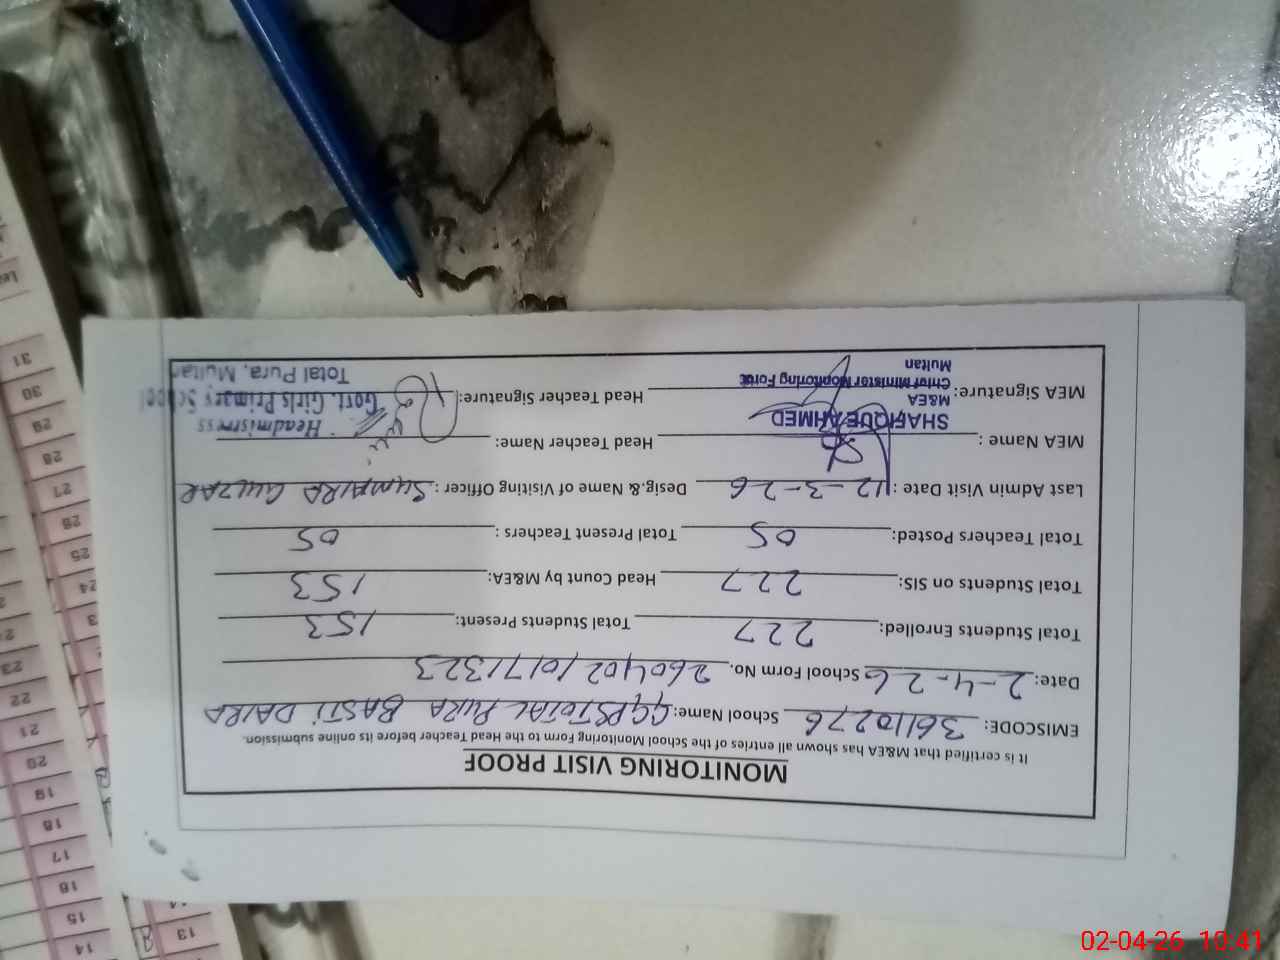 MONITORING VISIT PROOF
It is certified that M&EA has shown all entries of the School Monitoring Form to the Head Teacher before its online submission.
EMISCODE: 36110276 School Name: GGPS TOTAL PURA BASTI DAIRA
Date: 2-4-26 School Form No. 26040210171323
Total Students Enrolled: 227 Total Students Present: 153
Total Students on SIS: 227 Head Count by M&EA: 153
Total Teachers Posted: 05 Total Present Teachers : 05
Last Admin Visit Date : 12-3-26 Desig.&.Name of Visiting Officer : SUMAIRA GULZAR
MEA Name : Head Teacher Name:
SHAFIQUE AHMED
M&EA
Chief Minister Monitoring Force
Multan
MEA Signature: Head Teacher Signature:
Headmistress
Govt. Girls Primary School
Total Pura, Multan
31
30
29
28
27
26
25
24
23
22
21
20
19
18
17
16
15
14
13
02-04-26 10:41